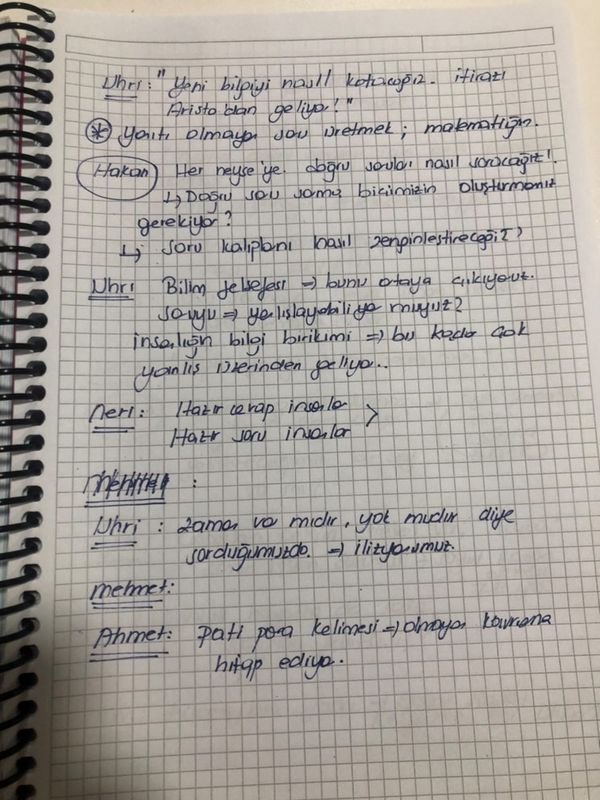 Uhri: "Yeni bilgiyi nasıl katacağız. itirazı
Aristo'dan geliyor!"
* yanıtı olmayan soru üretmek; matematiğin.
Hakan Her neyse'ye. doğru soruları nasıl soracağız!
↳ Doğru soru sorma bicimizin oluşturmamız
gerekiyor?
↳ soru kalıplarını nasıl zenginleştireceğiz?
Uhri Bilim felsefesi ⇒ bunu ortaya çıkıyoruz.
soruyu ⇒ yanlışlayabiliyor muyuz?
insanlığın bilgi birikimi ⇒ bu kadar çok
yanlış üzerinden geliyor..
Neri: Hazır cevap insanlar >
Hazır soru insanlar
:
Uhri : zaman var mıdır, yok mudur diye
sorduğumuzda. ⇒ ilizyonumuz.
mehmet:
Ahmet: para kelimesi ⇒ olmayan kavrama
hitap ediyor.